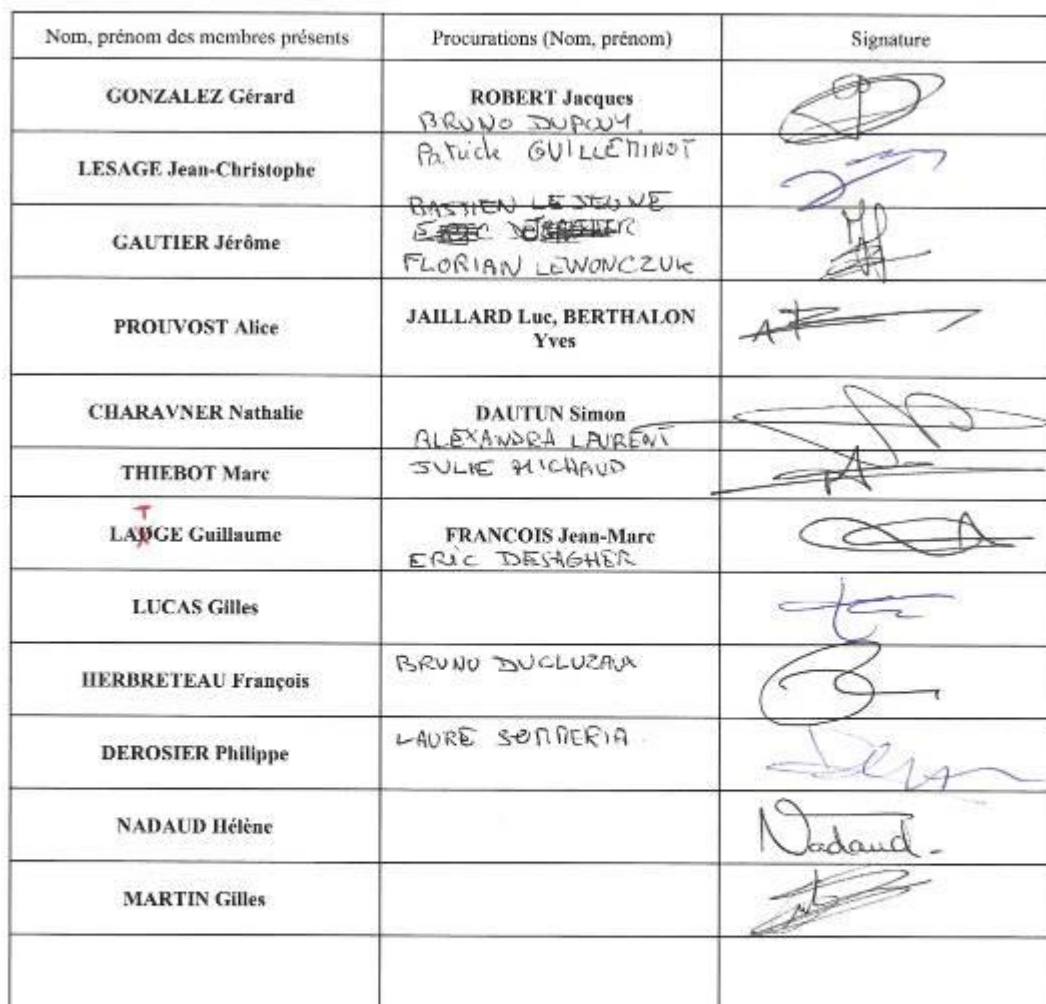 Nom, prénom des membres présents Procurations (Nom, prénom) Signature
GONZALEZ Gérard ROBERT Jacques
BRUNO DUPOUY.
Patrick GUILLEMINOT
LESAGE Jean-Christophe
BASTIEN LEJEUNE
GAUTIER Jérôme
FLORIAN LEWONCZUK
PROUVOST Alice JAILLARD Luc, BERTHALON
Yves
CHARAVNER Nathalie DAUTUN Simon
ALEXANDRA LAURENT
THIEBOT Marc JULIE MICHAUD
T
LADGE Guillaume FRANCOIS Jean-Marc
ERIC DESAGHER
LUCAS Gilles
HERBRETEAU François BRUNO DUCLUZAUX
DEROSIER Philippe LAURE SOMMERIA.
NADAUD Hélène Nadaud.
MARTIN Gilles